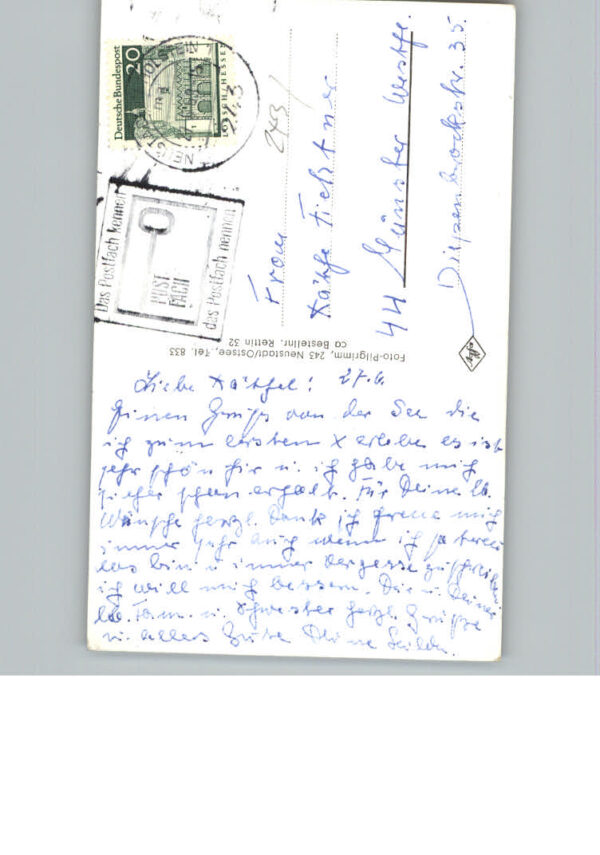 Deutsche Bundespost
20
LORSCH/HESSEN
243
Das Postfach kennen
POST
FACH
das Postfach nennen
243
Frau
Käthe
44 Münster Westf.
Diepenbrockstr. 35.
Foto-Pilgrimm, 243 Neustadt/Ostsee, Tel. 833
ca Bestellnr. Rettin 32
Agfa
Liebe Käthel! 27.6.
Einen Gruß von der See die
ich zum ersten x erlebe es ist
sehr schön hier u. ich habe mich
sicher schon erholt. Für Deine lb.
Wünsche herzl. Dank ich freue mich
immer sehr auch wenn ich so
bin u. immer vergesse zu schreiben
ich will mich bessern. Dir u. Deiner
lb. Fam. u. Schwester herzl. Grüße
u. alles Gute Deine